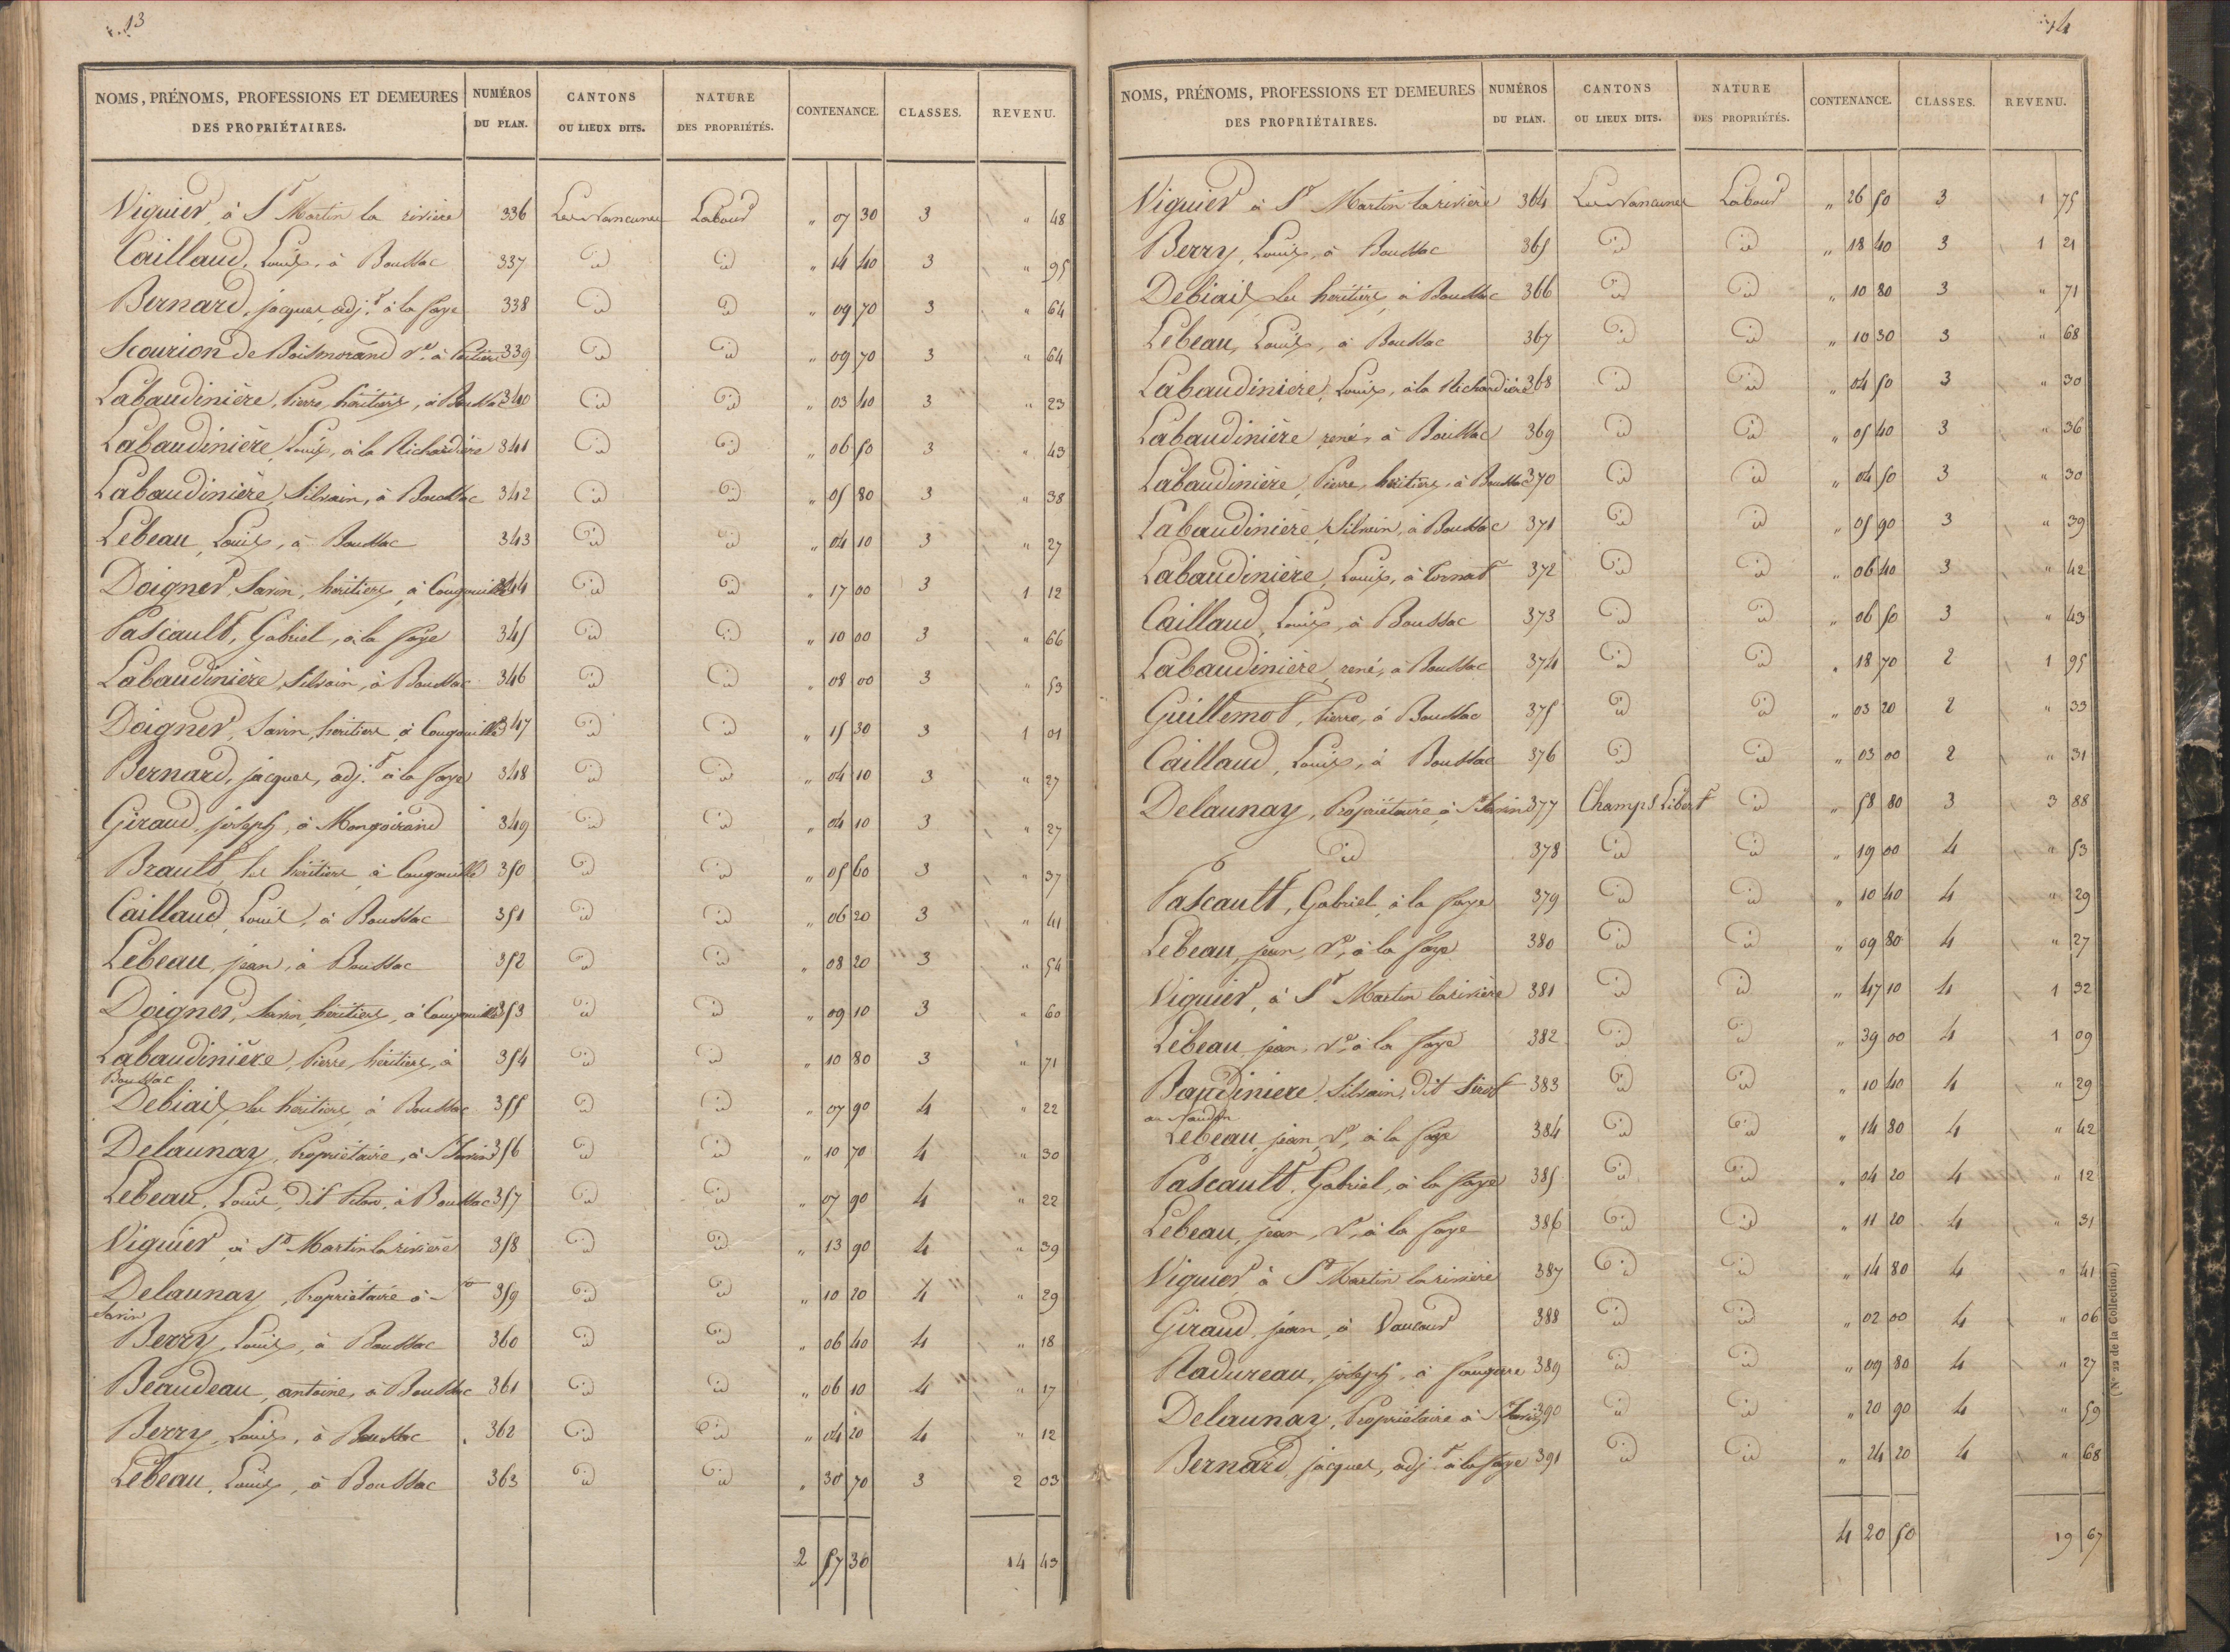 13
NOMS, PRÉNOMS, PROFESSIONS ET DEMEURES DES PROPRIÉTAIRES. NUMÉROS DU PLAN. CANTONS OU LIEUX DITS. NATURE DES PROPRIÉTÉS. CONTENANCE. CLASSES. REVENU.
Viguier, à St Martin la rivière 336 Labour " 07 30 3 " 48
Caillaud, Louis, à Boussac 337 id id " 14 40 3 " 95
Bernard, jacques, adj.t à la faye 338 id id " 09 70 3 " 64
Scourion de Boismorand Ve à Poitiers 339 id id " 09 70 3 " 64
Labaudinière, Pierre, héritiers, à Boussac 340 id id " 03 40 3 " 23
Labaudinière, Louis, à la Richardière 341 id id " 06 50 3 " 43
Labaudinière, Silvain, à Boussac 342 id id " 05 80 3 " 38
Lebeau, Louis, à Boussac 343 id id " 04 10 3 " 27
Doigner, Savin, héritiers, à Cougouille 344 id id " 17 00 3 1 12
Pascault, Gabriel, à la faye 345 id id " 10 00 3 " 66
Labaudinière, Silvain, à Boussac 346 id id " 08 00 3 " 53
Doigner, Savin, héritiers à Cougouille 347 id id " 15 30 3 1 01
Bernard, jacques, adj.t à la faye 348 id id " 04 10 3 " 27
Giraud, joseph, à Mongoirand 349 id id " 04 10 3 " 27
Brault, les héritiers à Cougouille 350 id id " 05 60 3 " 37
Caillaud, Louis, à Boussac 351 id id " 06 20 3 " 41
Lebeau, jean, à Boussac 352 id id " 08 20 3 " 54
Doigner, Savin, héritiers, à Cougouille 353 id id " 09 10 3 " 60
Labaudinière, Pierre, héritiers, à 354 id id " 10 80 3 " 71
Boussac
Debiais, les héritiers à Boussac 355 id id " 07 90 4 " 22
Delaunay, Propriétaire, à St Savin 356 id id " 10 70 4 " 30
Lebeau, Louis, dit à Boussac 357 id id " 07 90 4 " 22
Viguier, à St Martin la rivière 358 id id " 13 90 4 " 39
Delaunay, Propriétaire à St 359 id id " 10 20 4 " 29
Savin
Berry, Louis, à Boussac 360 id id " 06 40 4 " 18
Beaudeau, antoine, à Boussac 361 id id " 06 10 4 " 17
Berry, Louis, à Boussac 362 id id " 04 20 4 " 12
Lebeau, Louis, à Boussac 363 id id " 30 70 3 2 03
2 57 30 14 43
14
NOMS, PRÉNOMS, PROFESSIONS ET DEMEURES DES PROPRIÉTAIRES. NUMÉROS DU PLAN. CANTONS OU LIEUX DITS. NATURE DES PROPRIÉTÉS. CONTENANCE. CLASSES. REVENU.
Viguier à St Martin la rivière 364 Labour " 26 50 3 1 75
Berry, Louis, à Boussac 365 id id " 18 40 3 1 21
Debiais, les héritiers, à Boussac 366 id id " 10 80 3 " 71
Lebeau, Louis, à Boussac 367 id id " 10 30 3 " 68
Labaudinière, Louis, à la Richardière 368 id id " 04 50 3 " 30
Labaudinière, rené, à Boussac 369 id id " 05 40 3 " 36
Labaudinière, Pierre, héritiers, à Boussac 370 id id " 04 50 3 " 30
Labaudinière, Silvain, à Boussac 371 id id " 05 90 3 " 39
Labaudinière, Louis, à 372 id id " 06 40 3 " 42
Caillaud, Louis, à Boussac 373 id id " 06 50 3 " 43
Labaudinière, rené, à Boussac 374 id id " 18 70 2 1 95
Guillemot, Pierre, à Boussac 375 id id " 03 20 2 " 33
Caillaud, Louis, à Boussac 376 id id " 03 00 2 " 31
Delaunay, Propriétaire à St Savin 377 Champs Libert id " 58 80 3 3 88
id 378 id id " 19 00 4 " 53
Pascault, Gabriel, à la faye 379 id id " 10 40 4 " 29
Lebeau, jean, Ve, à la faye 380 id id " 09 80 4 " 27
Viguier, à St Martin la rivière 381 id id " 47 10 4 1 32
Lebeau, jean, Ve, à la faye 382 id id " 39 00 4 1 09
Baudiniere, Silvain, dit 383 id id " 10 40 4 " 29
Lebeau, jean, Ve, à la faye 384 id id " 14 80 4 " 42
Pascault, Gabriel, à la faye 385 id id " 04 20 4 " 12
Lebeau, jean, Ve, à la faye 386 id id " 11 20 4 " 31
Viguier, à St Martin la rivière 387 id id " 14 80 4 " 41
Giraud, jean, à Vaucour 388 id id " 02 00 4 " 06
Radureau, joseph, à fougere 389 id id " 09 80 4 " 27
Delaunay, Propriétaire à St Savin 390 id id " 20 90 4 " 59
Bernard, jacques, adj.t à la faye 391 id id " 24 20 4 " 68
4 20 50 19 67
(N° 22 de la Collection.)